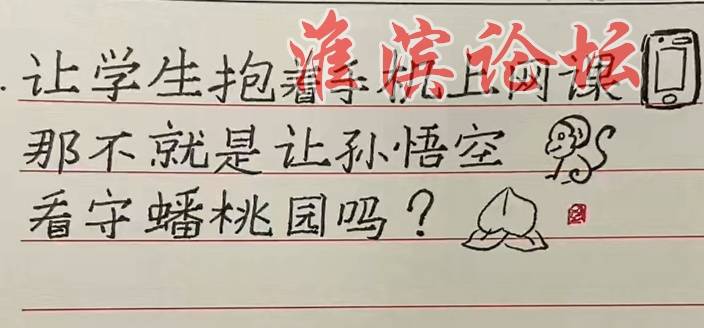 淮滨论坛
让学生抱着手机上网课
那不就是让孙悟空
看守蟠桃园吗？